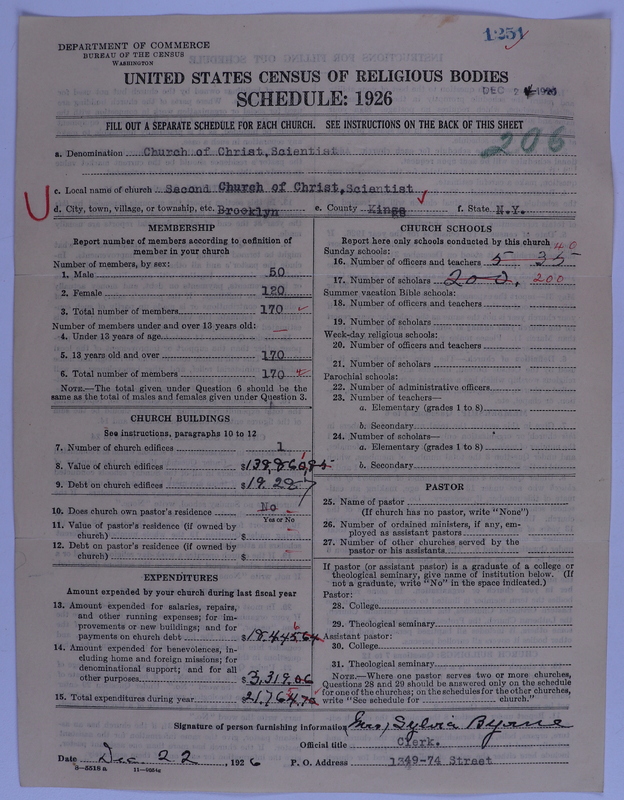 1251
DEPARTMENT OF COMMERCE
BUREAU OF THE CENSUS
WASHINGTON
UNITED STATES CENSUS OF RELIGIOUS BODIES
SCHEDULE: 1926
DEC 24 1926
FILL OUT A SEPARATE SCHEDULE FOR EACH CHURCH. SEE INSTRUCTIONS ON THE BACK OF THIS SHEET
206
a. Denomination Church of Christ,Scientist
c. Local name of church Second Church of Christ,Scientist
d. City, town, village, or township, etc. Brooklyn e. County Kings f. State N.Y.
MEMBERSHIP
Report number of members according to definition of
member in your church
Number of members, by sex:
1. Male 50
2. Female 120
3. Total number of members 170
Number of members under and over 13 years old:
4. Under 13 years of age —
5. 13 years old and over 170
6. Total number of members 170
NOTE.—The total given under Question 6 should be the
same as the total of males and females given under Question 3.
CHURCH BUILDINGS
See instructions, paragraphs 10 to 12
7. Number of church edifices 1
8. Value of church edifices $138,860.85
9. Debt on church edifices
10. Does church own pastor's residence No
Yes or No
11. Value of pastor's residence (if owned by
church) $
12. Debt on pastor's residence (if owned by
church) $
EXPENDITURES
Amount expended by your church during last fiscal year
13. Amount expended for salaries, repairs,
and other running expenses; for im-
provements or new buildings; and for
payments on church debt $18,445.64
14. Amount expended for benevolences, in-
cluding home and foreign missions; for
denominational support; and for all
other purposes $3,319.06
15. Total expenditures during year 21,764.70
CHURCH SCHOOLS
Report here only schools conducted by this church
Sunday schools: 40
16. Number of officers and teachers 5 35
17. Number of scholars 200. 200
Summer vacation Bible schools:
18. Number of officers and teachers
19. Number of scholars
Week-day religious schools:
20. Number of officers and teachers
21. Number of scholars
Parochial schools:
22. Number of administrative officers
23. Number of teachers—
a. Elementary (grades 1 to 8)
b. Secondary
24. Number of scholars—
a. Elementary (grades 1 to 8)
b. Secondary
PASTOR
25. Name of pastor
(If church has no pastor, write "None")
26. Number of ordained ministers, if any, em-
ployed as assistant pastors
27. Number of other churches served by the
pastor or his assistants
If pastor (or assistant pastor) is a graduate of a college or
theological seminary, give name of institution below. (If
not a graduate, write "No" in the space indicated.)
Pastor:
28. College
29. Theological seminary
Assistant pastor:
30. College
31. Theological seminary
NOTE.—Where one pastor serves two or more churches,
Questions 28 and 29 should be answered only on the schedule
for one of the churches; on the schedules for the other churches,
write "See schedule for church."
Signature of person furnishing information Mrs, Sylvia Byrne
Official title Clerk.
Date Dec. 22, 1926 P. O. Address 1349-74 Street
8—5518 a 11—9954a